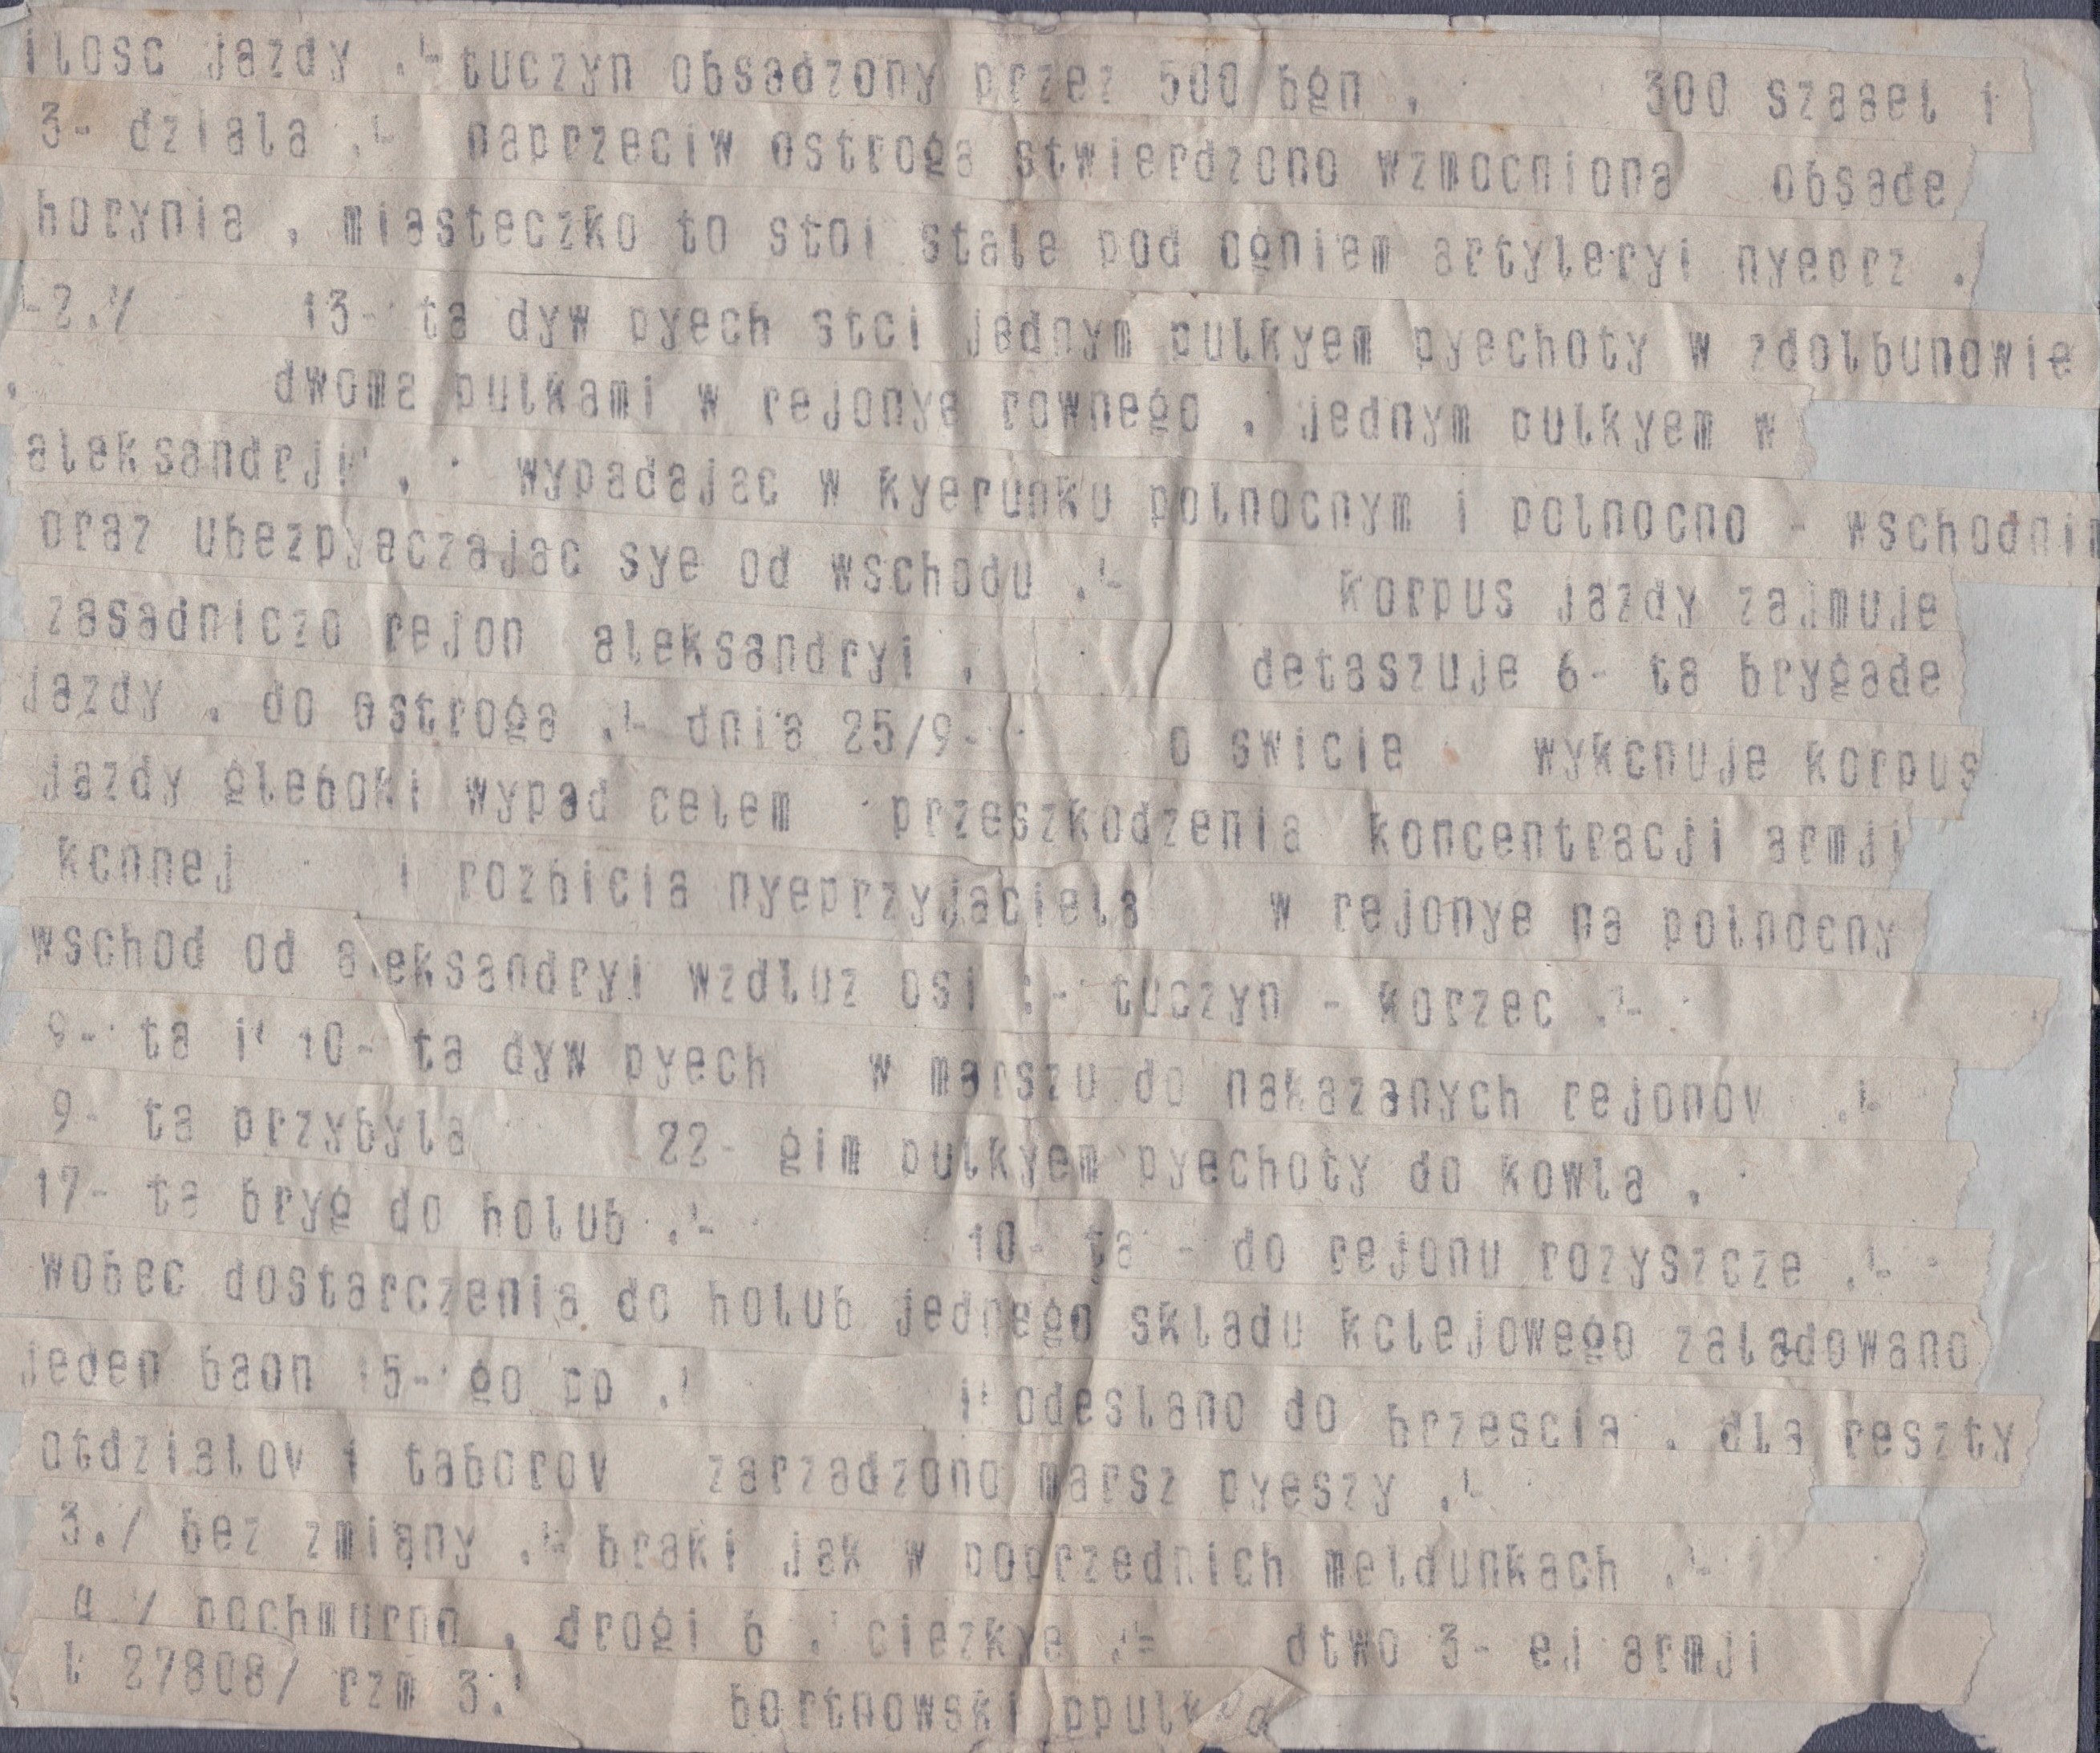 ilosc jazdy .- tuczyn obsadzony przez 500 bgn , 300 szaael i
3- dziala .- naprzeciw ostroga stwierdzono wzmocniona obsade
horynia , miasteczko to stoi stale pod ogniem artyleryi nyeprz .
-2./ 13- ta dyw pyech stci jednym pulkyem pyechoty w zdolbunowie
, dwoma pulkami w rejonye rownego , jednym pulkyem w
aleksandrji , wypadajac w kyerunku polnocnym i polnocno - wschodnim
oraz ubezpyeczajac sye od wschodu .- korpus jazdy zajmuje
zasadniczo rejon aleksandryi , detaszuje 6- ta brygade
jazdy , do ostroga .- dnia 25/9- o swicie wykcnuje korpus
jazdy gleboki wypad celem przeszkodzenia koncentracji armji
kcnnej i rozbicia nyeprzyjaciela w rejonye na polnocny
wschod od aleksandryi wzdluz osi :- tuczyn - korzec .-
9- ta i 10- ta dyw pyech w marszu do nakazanych rejonov .-
9- ta przybyla 22- gim pulkyem pyechoty do kowla ,
17- ta bryg do holub .- 10- ta - do rejonu rozyszcze .-
wobec dostarczenia do holub jednego skladu kclejowego zaladowano
jeden baon 15- go pp . i odeslano do brzescia , dla reszty
otdzialov i taborov zarzadzono marsz pyeszy .-
3./ bez zmiany .- braki jak w poprzednich meldunkach .-
4./ pochmurno , drogi b . ciezkye .= dtwo 3- ej armji
l 27808/ rzm 3. bortnowski ppulk